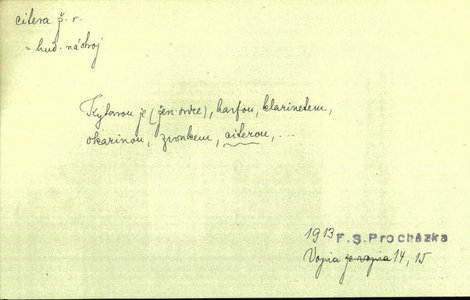 citera ž. r.
= hud. nástroj
Kytarou je (žen. srdce), harfou, klarinetem,
okarinou, zvonkem, citerou, ...
1913 F. S. Procházka
Vojna je vojna 14, 15